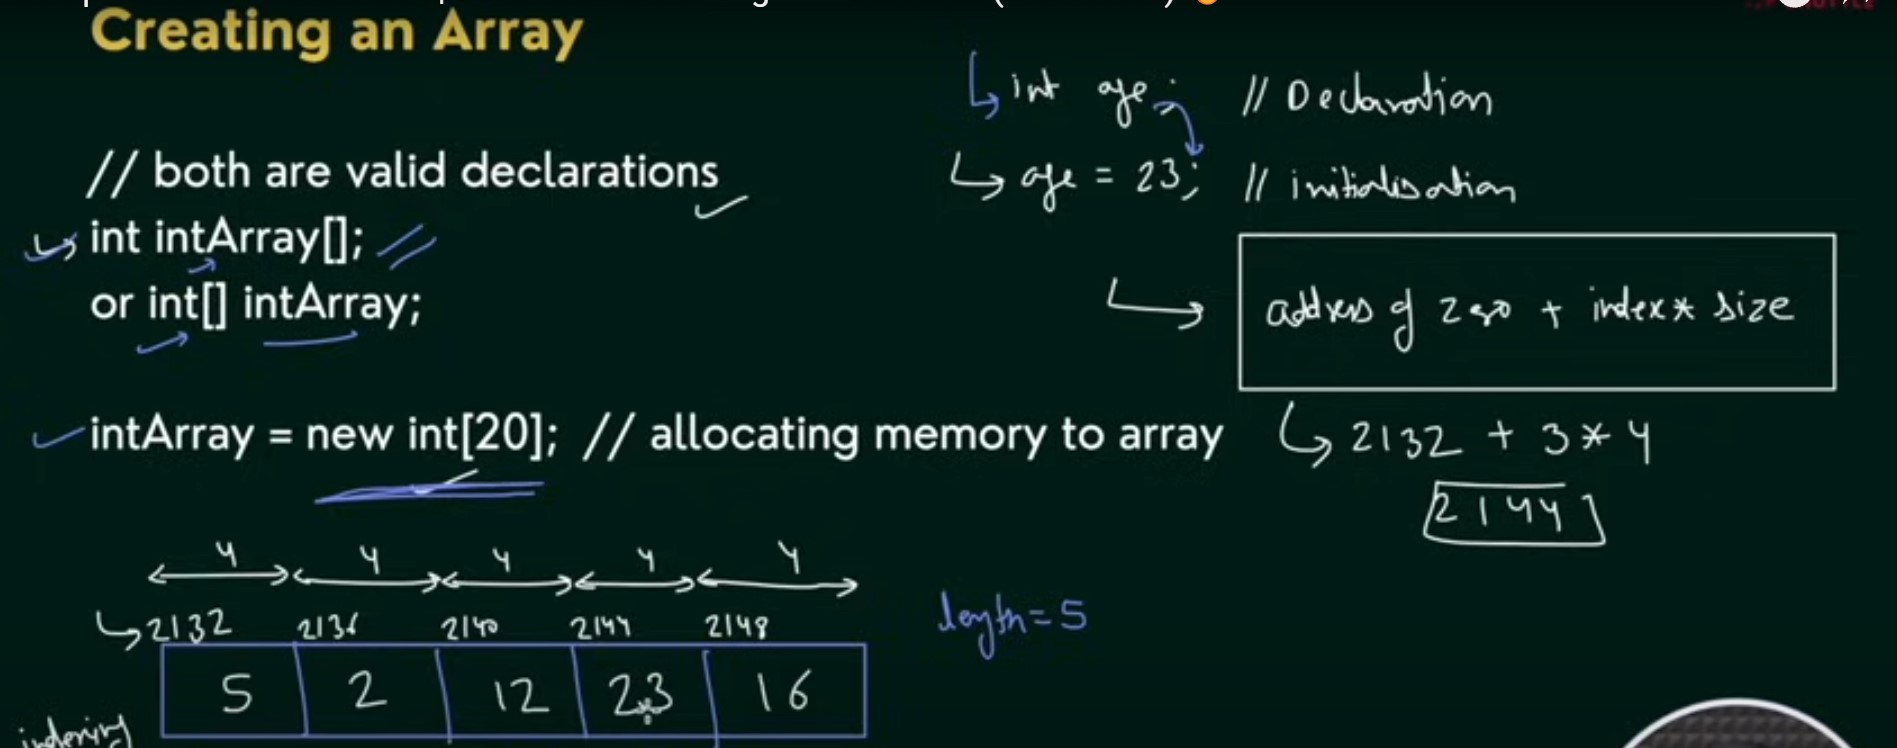 Creating an Array
// both are valid declarations
int intArray[];
or int[] intArray;
intArray = new int[20]; // allocating memory to array
int age; // Declaration
age = 23; // initialisation
address of zero + index * size
2132 + 3 * 4
2144
4 4 4 4 4
2132 2136 2140 2144 2148
5 2 12 23 16
length = 5
indexing